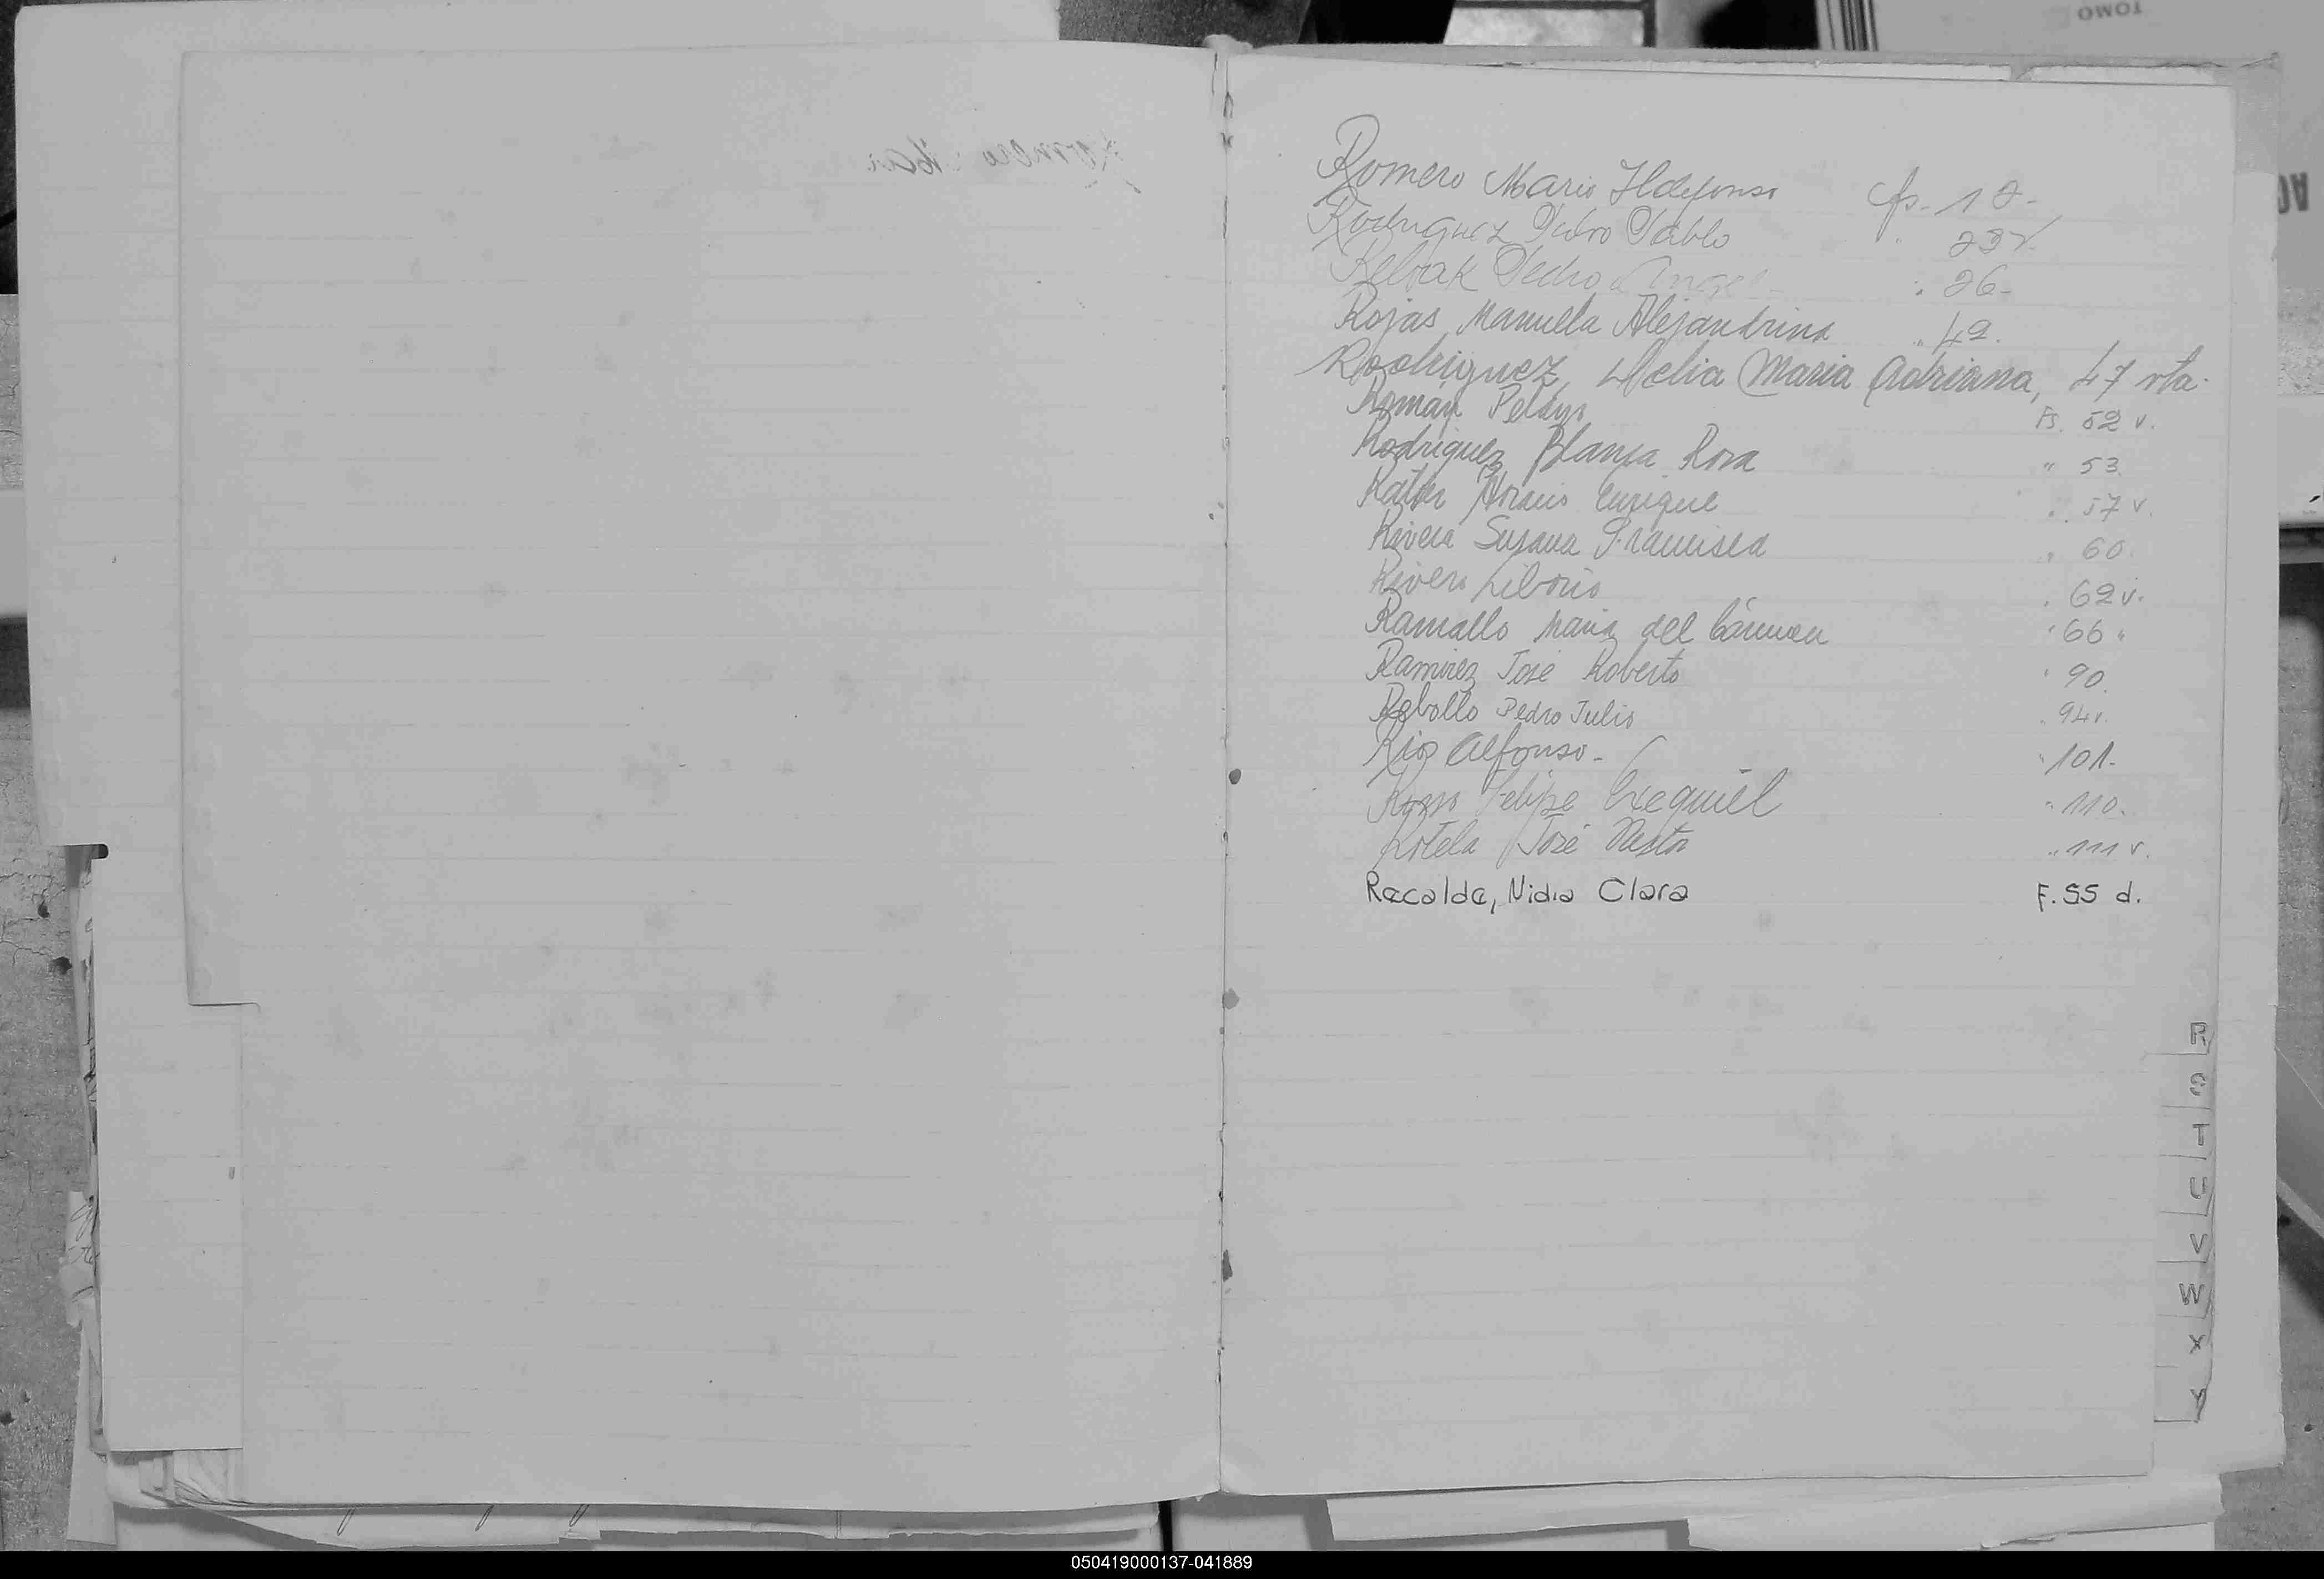 TOMO
Romero Mario Ildefonso fs. 12-
Rodriguez Pedro Pablo " 23v
Relvak Pedro Angel - " 26-
Rojas Manuela Alejandrina " 42.
Rodriguez, Delia Maria Adriana, 47 vta.
Román Pelayo Fs. 52 v.
Rodriguez Blanca Rosa " 53
Enrique " 57 v.
Rivera Susana Francisca " 60.
Rivero Liborio " 62 v.
Ramallo María del Cármen " 66 "
Ramirez José Roberto " 90.
Rebollo Pedro Julio " 94v.
Rio Alfonso - " 101-
Felipe Exequiel " 110.
Rotela José Nestor " 111 v.
Recalde, Nidia Clara F. 55 d.
R
S
T
U
V
W
X
Y
050419000137-041889